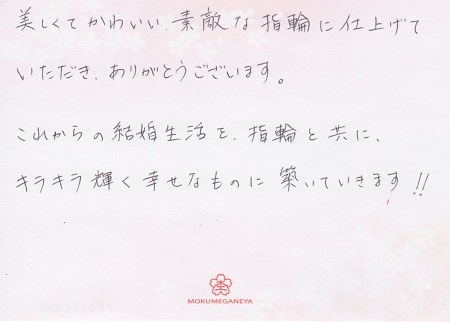 美しくてかわいい、素敵な指輪に仕上げて
いただき、ありがとうございます。
これからの結婚生活を、指輪と共に、
キラキラ輝く幸せなものに築いていきます!!
MOKUMEGANEYA